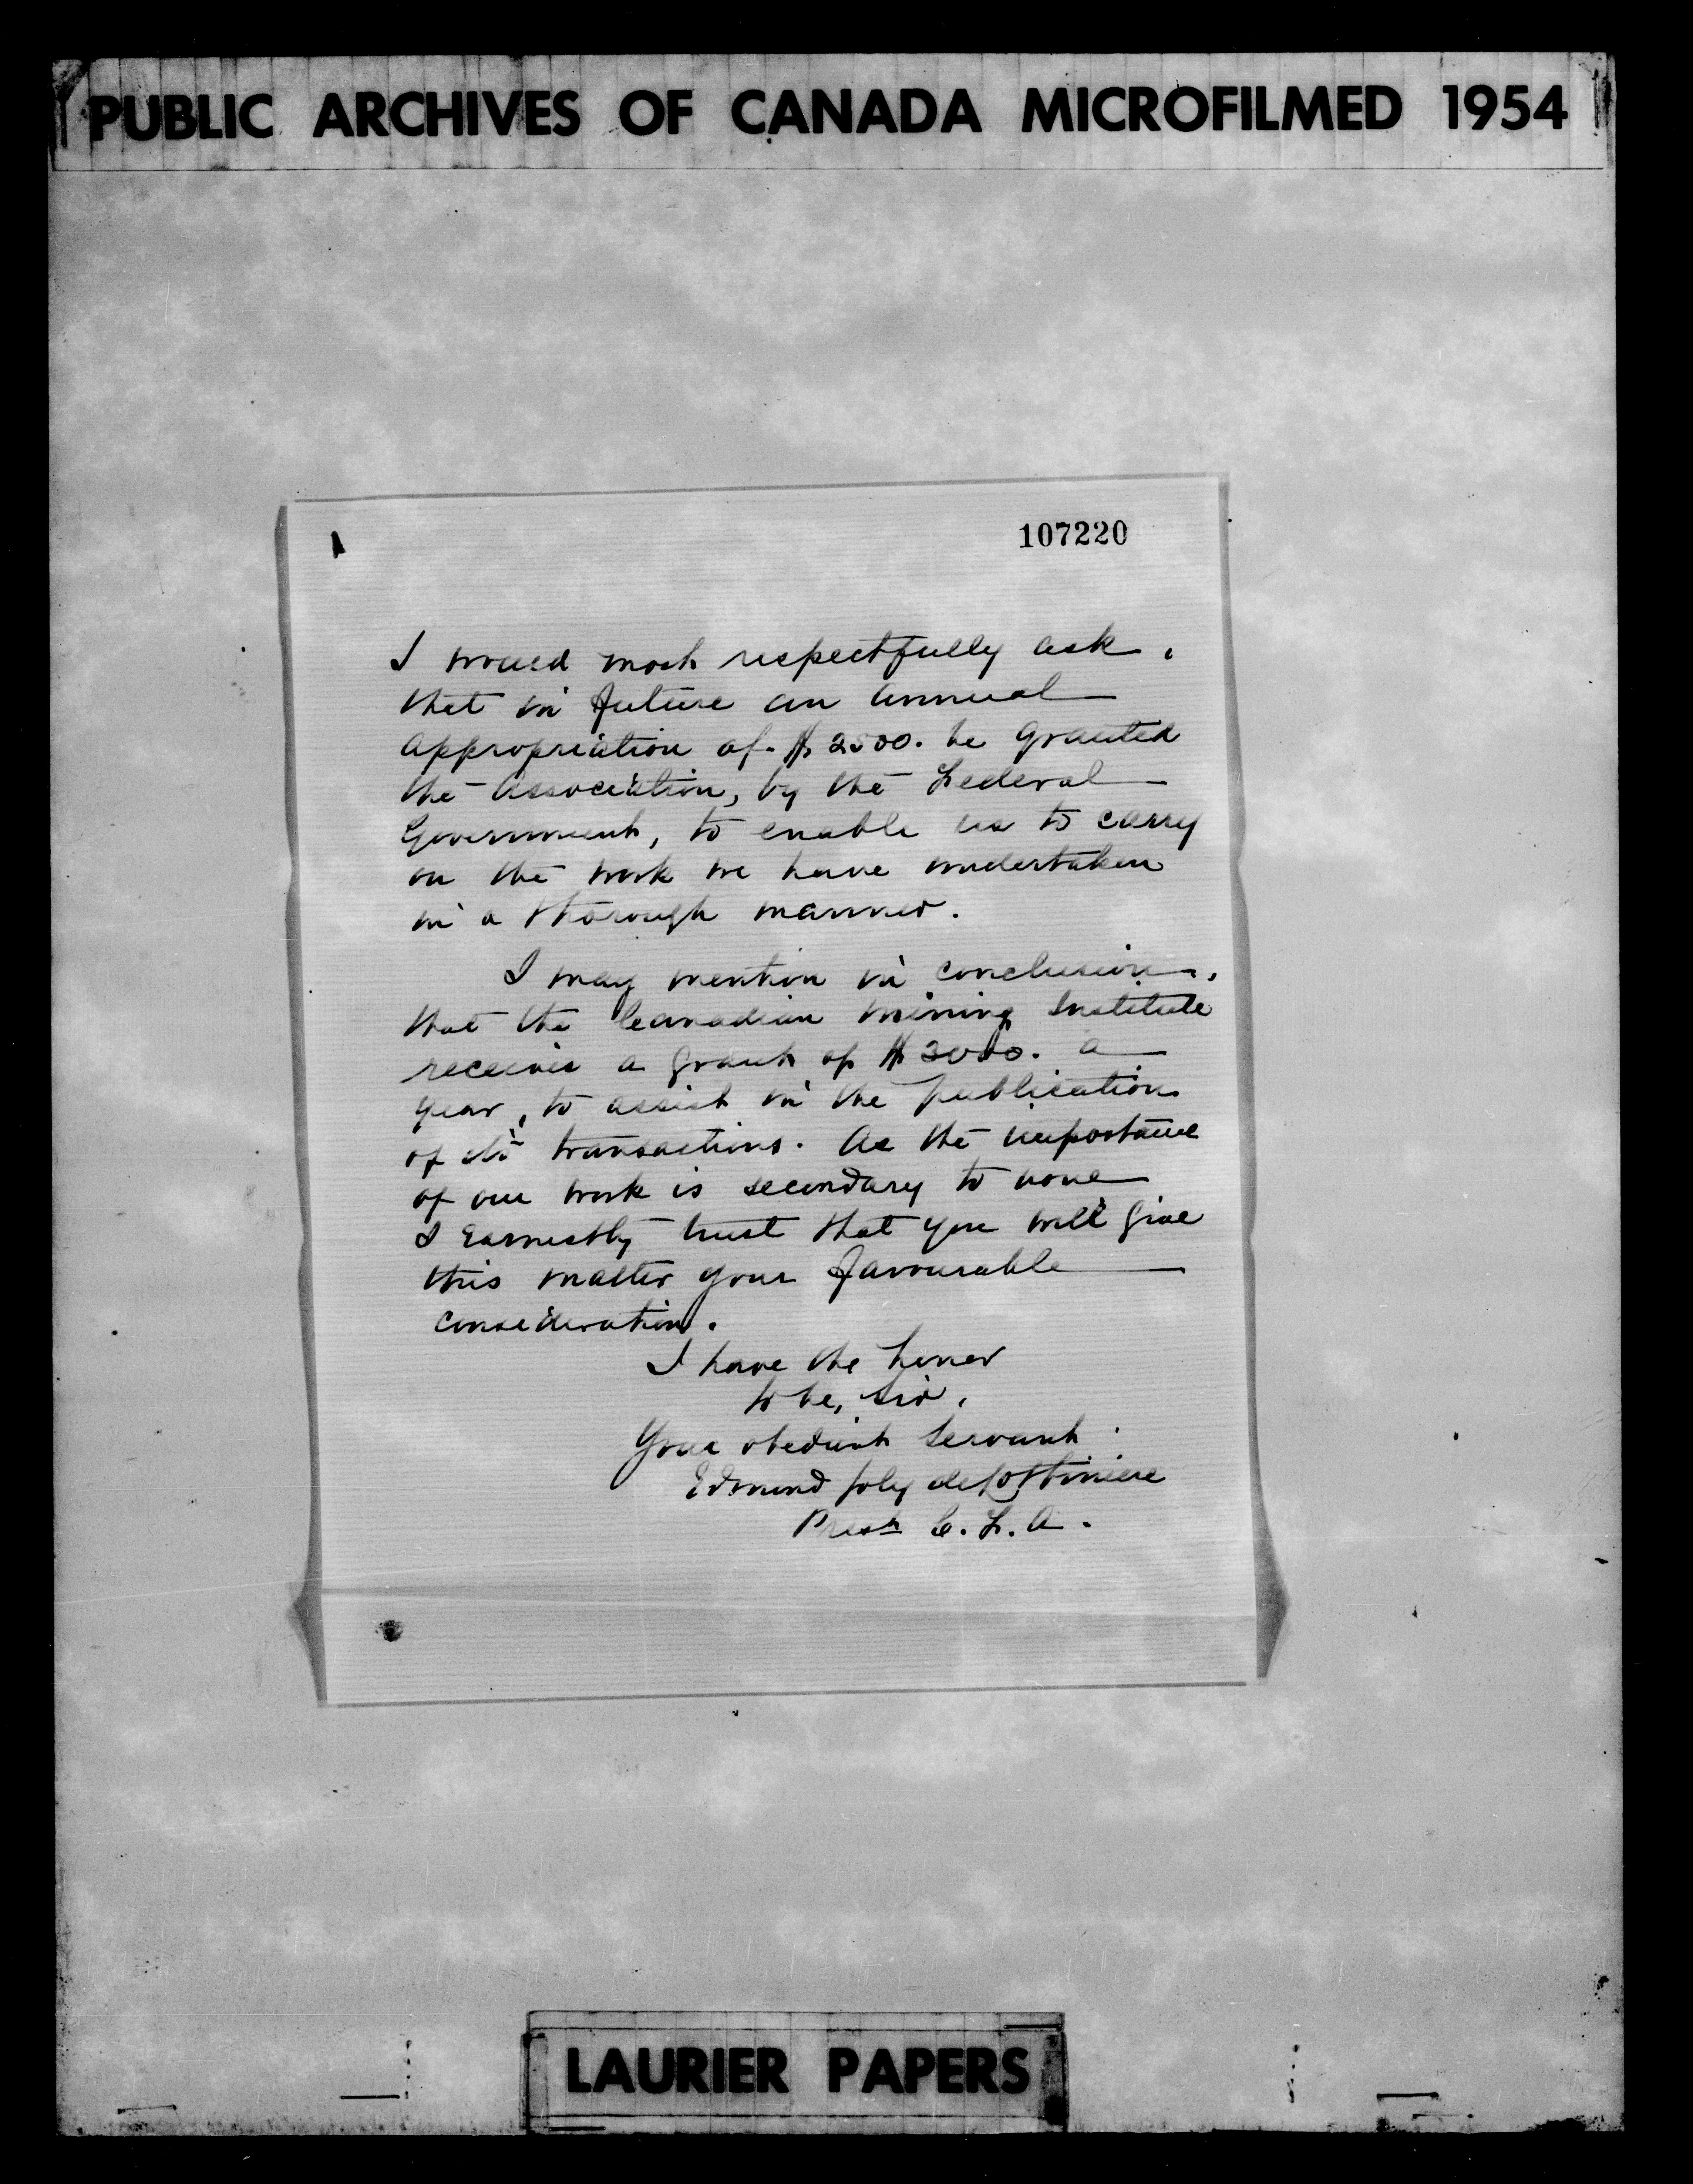 PUBLIC ARCHIVES OF CANADA MICROFILMED 1954
107220
I would most respectfully ask,
that in future an annual
appropriation of $2500. be granted
the Association, by the Federal
Government, to enable us to carry
on the work we have undertaken
in a thorough manner.
I may mention in conclusion,
that the Canadian Mining Institute
receives a grant of $3000. a
year, to assist in the publication
of its transactions. As the importance
of our work is secondary to none
I earnestly trust that you will give
this matter your favourable
consideration.
I have the honor
to be, Sir,
Your obedient Servant.
Edmund Joly de Lotbiniere
Prest C. F. A.
LAURIER PAPERS